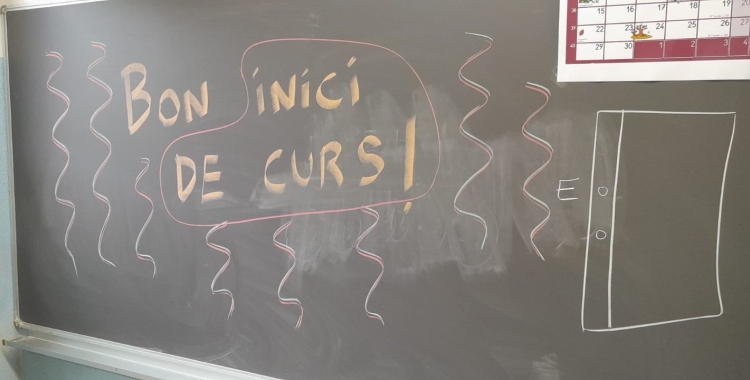 BON INICI
DE CURS!
E
15 16 17 18 19 20
22 23 24 25 26 27
29 30 1 2 3 4